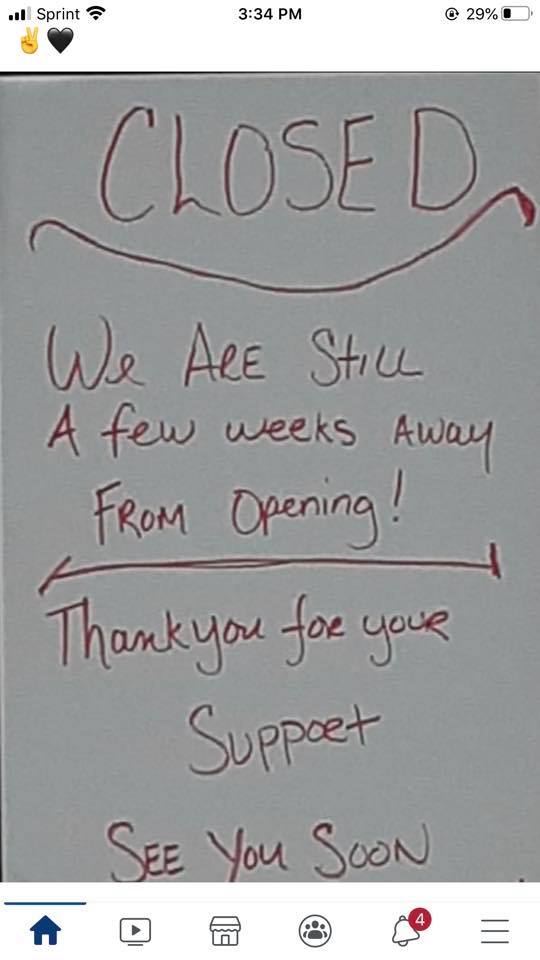 Sprint 3:34 PM 29%
✌️🖤
CLOSED
We ARE Still
A few weeks AWAY
FROM Opening!
Thank you for your
Support
SEE You SOON
4